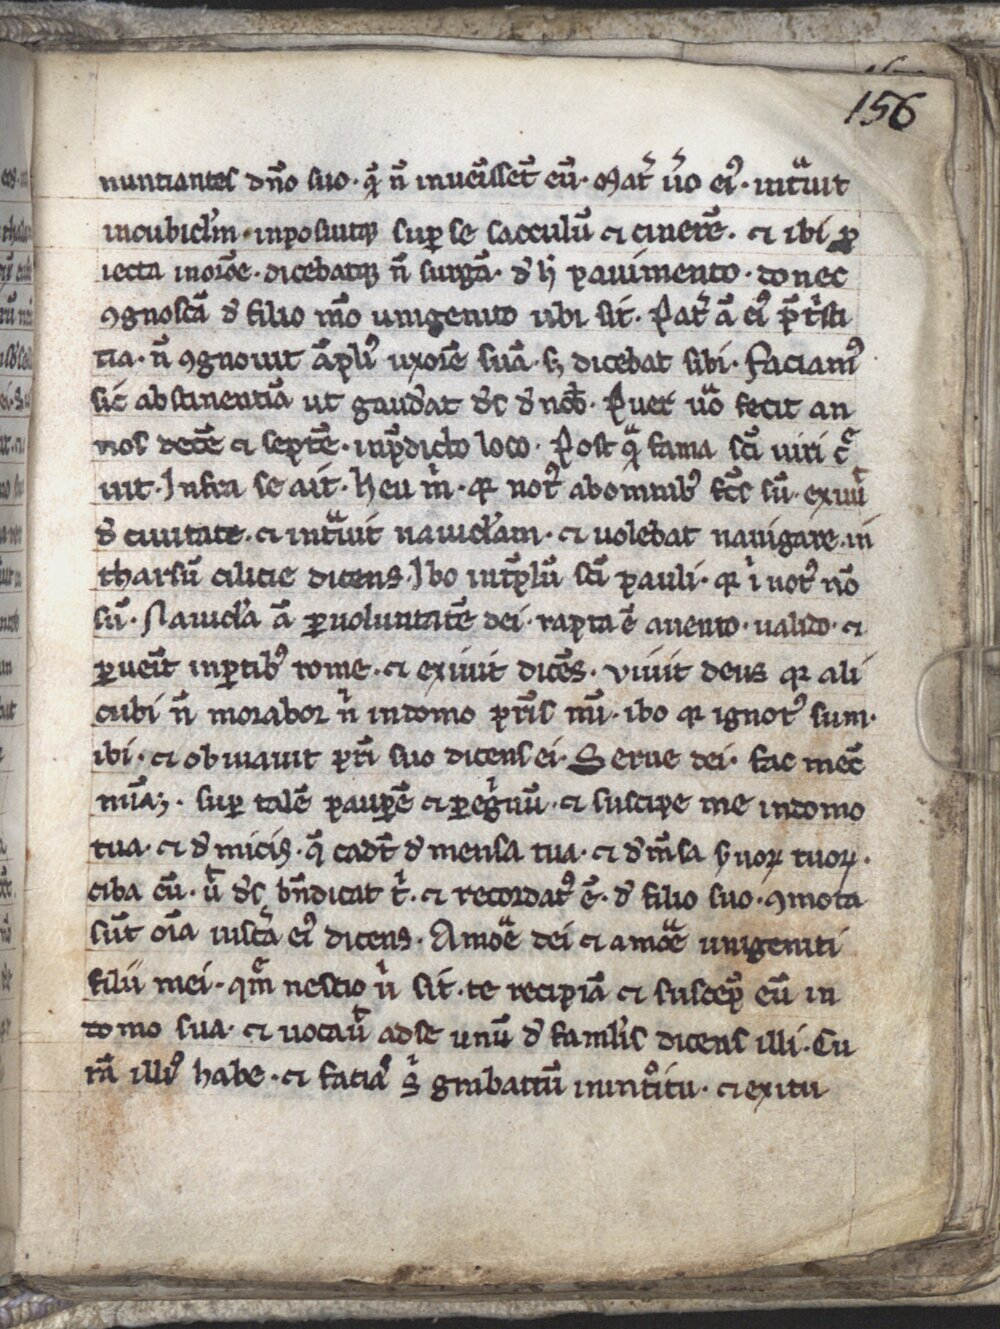 156
nuntiantes dn̄o suo · q̄ n̄ inuēissēt eū · Mat̄ ůo ei᾽ · int̾uit
incubicl̄m · inposuitq; sup̱ se sacculū ⁊ cinerē · ⁊ ibi ꝓ
iecta inorōe · dicebatq; n̄ surgā · đ h̄ pauimento · donec
ꝯgnoscā đ filio m̄o unigenito ubi sit · Pat̄ ā ei᾽ p̄t̾sti
tia · n̄ ꝯgnouit āpli᾽ uxorē suā · s; dicebat sibi · Faciam᾽
sic abstinentiā ut gaudeat d̄s đ nob̄ · Puer ůo fecit an
nos decē ⁊ septē · inp̄dicto loco · Post q̄ fama sc̄i uiri c̄
uit · Infra se ait · heu m̾ · qr not᾽ abomnib᾽ fc̄s sū · exiuit
đ ciuitate · ⁊ int̾uit nauicl̄am · ⁊ uolebat nauigare in
tharsū cilicie dicens · Ibo int̄plū sc̄i pauli · qr i̇ not᾽ n̄o
sū · Nauicl̄a ā ꝑuoluntatē dei · rapta ē auento · ualido · ⁊
ꝑueīt inꝑtib᾽ rome · ⁊ exiuit dicēs · viuit deus qr ali
cubi n̄ morabor n̾ indomo pr̄is m̄i · ibo qr ignot᾽ sum ·
ibi · ⁊ obuiauit pr̄i suo dicens ei · Serue dei · fac mec̄
mīa; · sup̱ talē paup̱ē ⁊ ꝑeg̾nū · ⁊ suscipe me indomo
tua · ⁊ đ micis · q̄ cadt̄ đ mensa tua · ⁊ đ m̄sa s̾uoꝝ tuoꝝ ·
ciba eū · ů d̄s bn̄dicat t̾ · ⁊ recordat᾽ ē · đ filio suo · ꝯmota
sūt oīa uisc̄a ei᾽ dicens · Amōe dei ⁊ amōe unigeniti
filii mei · qm̄ nescio u̾ sit · te recipiā ⁊ suscep̄ eū in
domo sua · ⁊ uocau̾ adse unū đ faml̄is dicens illi · Cu
rā illi᾽ habe · ⁊ facia᾽ s̾ grabattū inint̊itu · ⁊ exitu